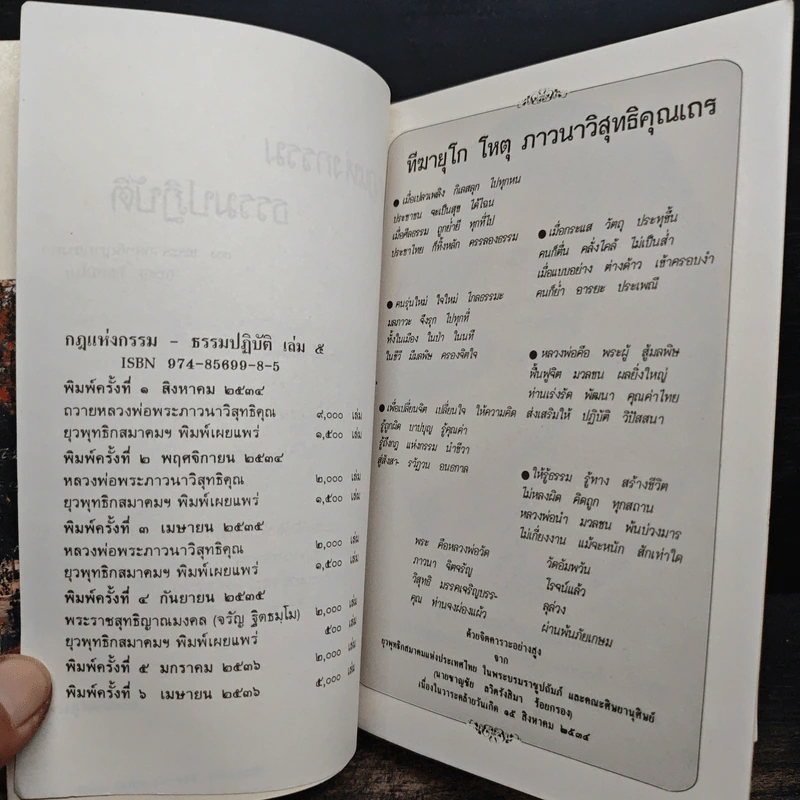 กฎแห่งกรรม - ธรรมปฏิบัติ เล่ม ๕
ISBN 974-85699-8-5
พิมพ์ครั้งที่ ๑ สิงหาคม ๒๕๓๔
ถวายหลวงพ่อพระภาวนาวิสุทธิคุณ ๙,๐๐๐ เล่ม
ยุวพุทธิกสมาคมฯ พิมพ์เผยแพร่ ๑,๕๐๐ เล่ม
พิมพ์ครั้งที่ ๒ พฤศจิกายน ๒๕๓๔
หลวงพ่อพระภาวนาวิสุทธิคุณ ๒,๐๐๐ เล่ม
ยุวพุทธิกสมาคมฯ พิมพ์เผยแพร่ ๑,๕๐๐ เล่ม
พิมพ์ครั้งที่ ๓ เมษายน ๒๕๓๕
หลวงพ่อพระภาวนาวิสุทธิคุณ ๒,๐๐๐ เล่ม
ยุวพุทธิกสมาคมฯ พิมพ์เผยแพร่ ๑,๕๐๐ เล่ม
พิมพ์ครั้งที่ ๔ กันยายน ๒๕๓๕
พระราชสุทธิญาณมงคล (จรัญ ฐิตธมฺโม) ๒,๐๐๐ เล่ม
ยุวพุทธิกสมาคมฯ พิมพ์เผยแพร่ ๕๐๐ เล่ม
พิมพ์ครั้งที่ ๕ มกราคม ๒๕๓๖ ๒,๐๐๐ เล่ม
พิมพ์ครั้งที่ ๖ เมษายน ๒๕๓๖ ๕,๐๐๐ เล่ม
ทีฆายุโก โหตุ ภาวนาวิสุทธิคุณเถร
● เมื่อเปลวเพลิง กิเลสลุก ไปทุกหน
ประชาชน จะเป็นสุข ได้ไฉน
เมื่อศีลธรรม ถูกย่ำยี ทุกที่ไป
ประชาไทย ก็ทิ้งหลัก ครรลองธรรม
● เมื่อกระแส วัตถุ ประทุขึ้น
คนก็ตื่น คลั่งไคล้ ไม่เป็นส่ำ
เมื่อแบบอย่าง ต่างด้าว เข้าครอบงำ
คนก็ย่ำ อารยะ ประเพณี
● คนรุ่นใหม่ ใจใหม่ ไกลธรรมะ
มลภาวะ จึงรุก ไปทุกที่
ทั้งในเมือง ในป่า ในนที
ในชีวี มีมลพิษ ครองจิตใจ
● หลวงพ่อคือ พระผู้ สู้มลพิษ
ฟื้นฟูจิต มวลชน ผลยิ่งใหญ่
ท่านเร่งรัด พัฒนา คุณค่าไทย
ส่งเสริมให้ ปฏิบัติ วิปัสสนา
● เพื่อเปลี่ยนจิต เปลี่ยนใจ ให้ความคิด
รู้ถูกผิด บาปบุญ รู้คุณค่า
รู้ถึงกฎ แห่งกรรม นำชีวา
สู่สังสา- รวัฏวน อนธกาล
● ให้รู้ธรรม รู้ทาง สร้างชีวิต
ไม่หลงผิด คิดถูก ทุกสถาน
หลวงพ่อนำ มวลชน พ้นบ่วงมาร
ไม่เกี่ยงงาน แม้จะหนัก สักเท่าใด
พระ คือหลวงพ่อวัด วัดอัมพวัน
ภาวนา จิตจรัญ โรจน์แล้ว
วิสุทธิ มรรคเจริญบรร- ลุล่วง
คุณ ท่านจงผ่องแผ้ว ผ่านพ้นภัยเกษม
ด้วยจิตคารวะอย่างสูง
จาก
ยุวพุทธิกสมาคมแห่งประเทศไทย ในพระบรมราชูปถัมภ์ และคณะศิษยานุศิษย์
(นายชาญชัย ลวิตรังสิมา ร้อยกรอง)
เนื่องในวาระคล้ายวันเกิด ๑๕ สิงหาคม ๒๕๓๔